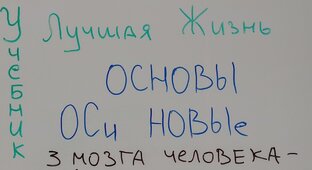 Учебник
Лучшая Жизнь
ОСНОВЫ
ОСи НОВЫе
3 МОЗГА ЧЕЛОВЕКА –